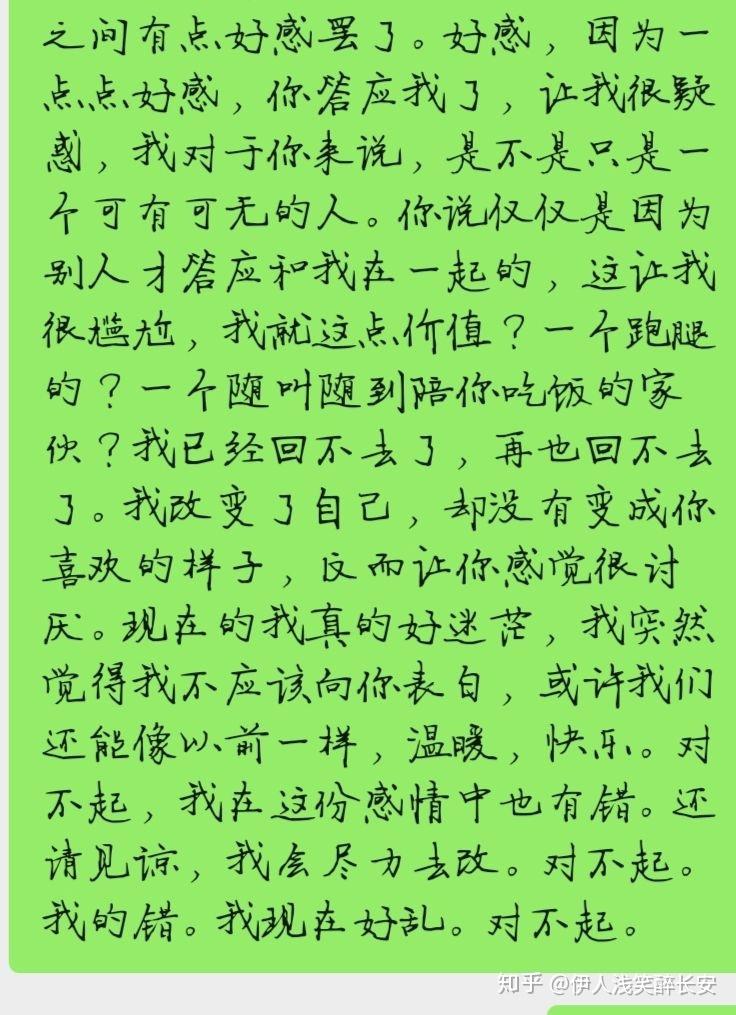 之间有点好感罢了。好感，因为一
点点好感，你答应我了，让我很疑
惑，我对于你来说，是不是只是一
个可有可无的人。你说仅仅是因为
别人才答应和我在一起的，这让我
很尴尬，我就这点价值？一个跑腿
的？一个随叫随到陪你吃饭的家
伙？我已经回不去了，再也回不去
了。我改变了自己，却没有变成你
喜欢的样子，反而让你感觉很讨
厌。现在的我真的好迷茫，我突然
觉得我不应该向你表白，或许我们
还能像以前一样，温暖，快乐。对
不起，我在这份感情中也有错。还
请见谅，我会尽力去改。对不起。
我的错。我现在好乱。对不起。
知乎 @伊人浅笑醉长安